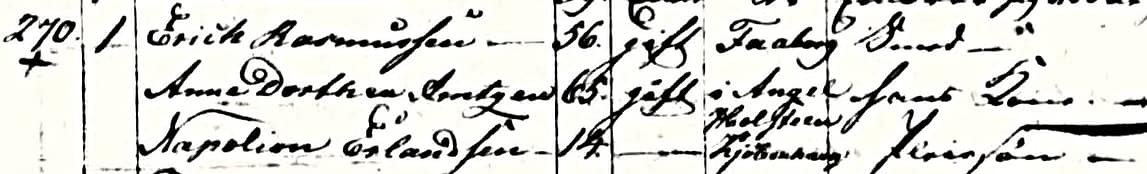 270. 1 Erich Rasmussen — 56. gift Faaborg Smed —
Anne Dorthea Lentzen 65. gift i Angel hans Kone. —
Holsteen
Napolion Erlandsen — 14. — Kjøbenhavn Pleiesøn —